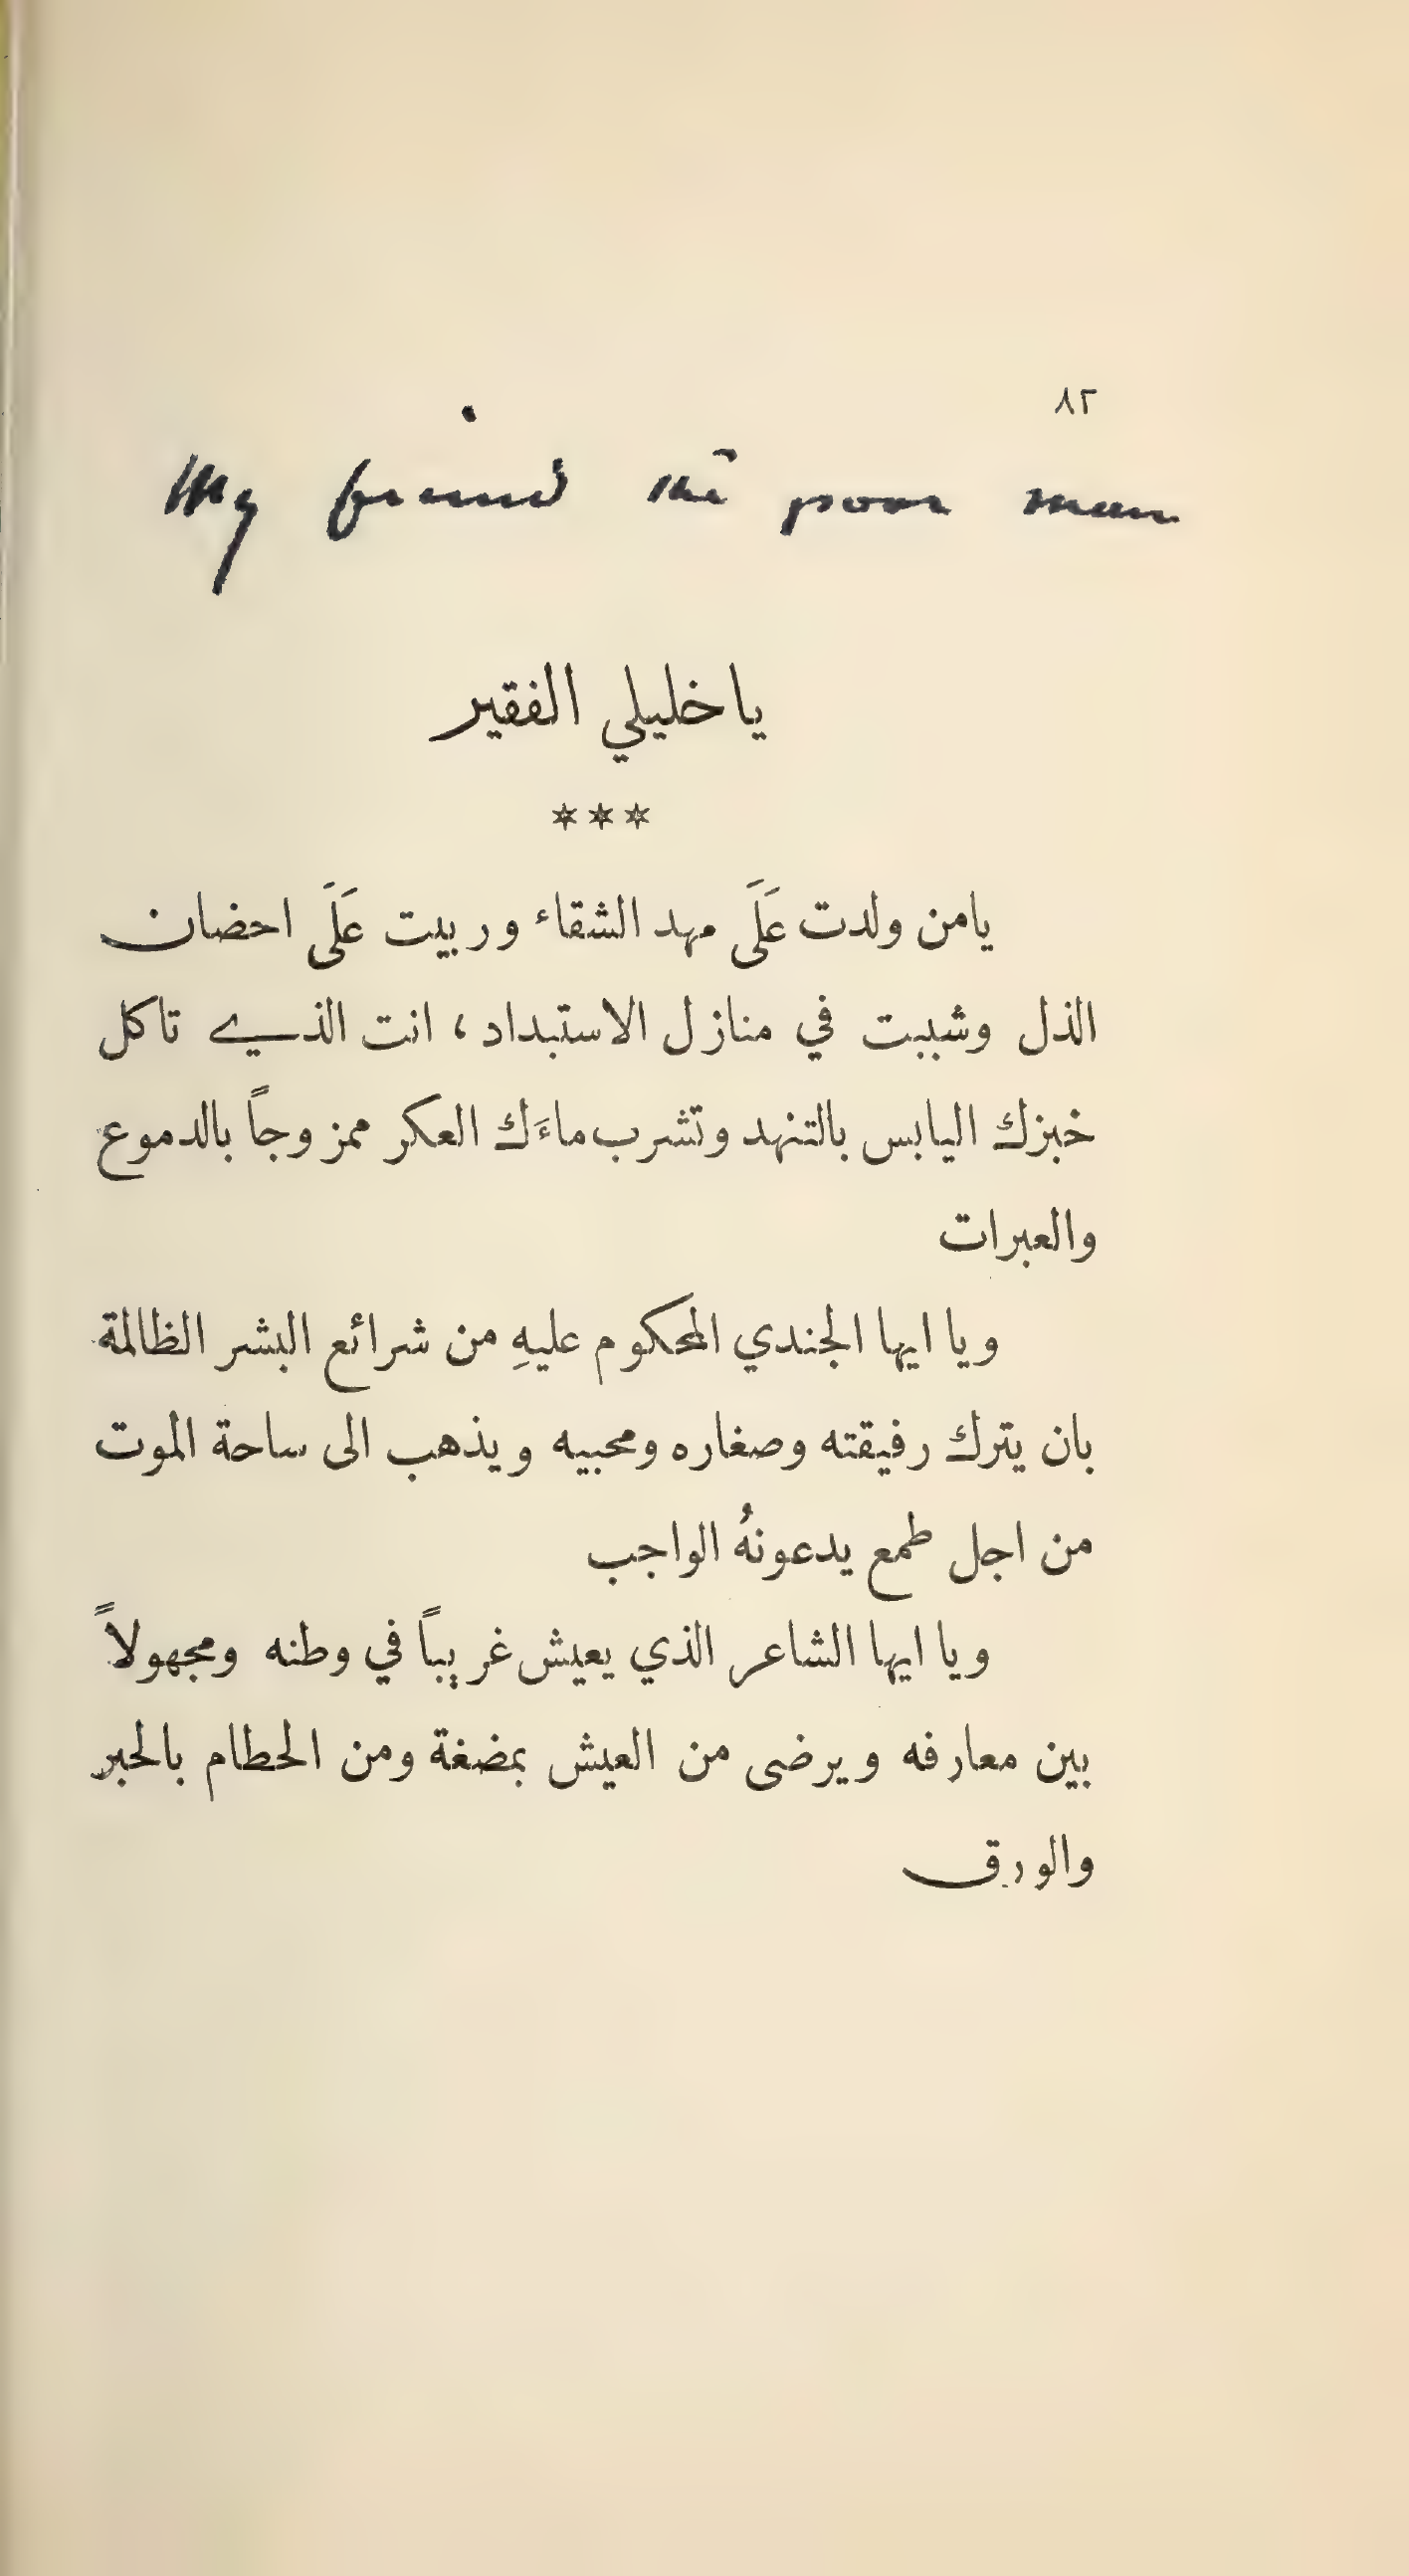 ٨٢
My friend the poor man
ياخليلي الفقير
***
يامن ولدت عَلَى مهد الشقاء وربيت عَلَى احضان
الذل وشببت في منازل الاستبداد، انت الذي تاكل
خبزك اليابس بالتنهد وتشرب ماءَك العكر ممزوجاً بالدموع
والعبرات
ويا ايها الجندي المحكوم عليهِ من شرائع البشر الظالمة
بان يترك رفيقته وصغاره ومحبيه ويذهب الى ساحة الموت
من اجل طمع يدعونهُ الواجب
ويا ايها الشاعر الذي يعيش غريباً في وطنه ومجهولاً
بين معارفه ويرضى من العيش بمضغة ومن الحطام بالحبر
والورق